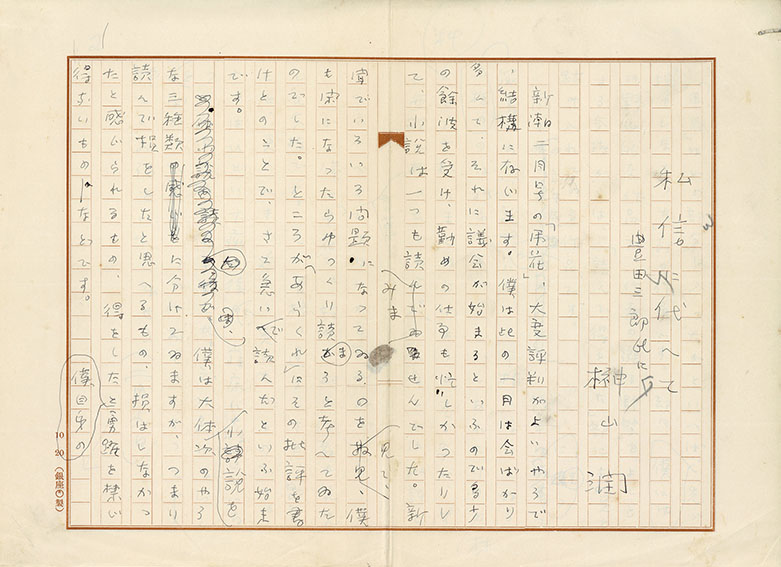 私信に代へて
豊田三郎氏に
榊山潤
新潮二月号の「弔花」、大変評判がよいやうで
、結構に存じます。僕は此の一月は会ばかり
多くて、それに議会が始まるといふので多少
の餘波を受け、勤めの仕事も忙しかつたりし
て、小説は一つも読んでゐませんでした。新
聞でいろいろ問題になつてゐるのを散見、僕
も閑になつたらゆつくり読まうと考へてゐた
のでした。ところが「あらくれ」にその批評を書
けとのことで、さて急いで読んだといふ始末
です。
小説を
僕は大体次のやう
な三種類に分けてゐますが、つまり
読んで損をしたと思へるもの、損はしなかつ
たと感じられるもの、得をしたと勇躍を禁じ
得ないものなどです。
僕自身の
10 20 (銀座 製)